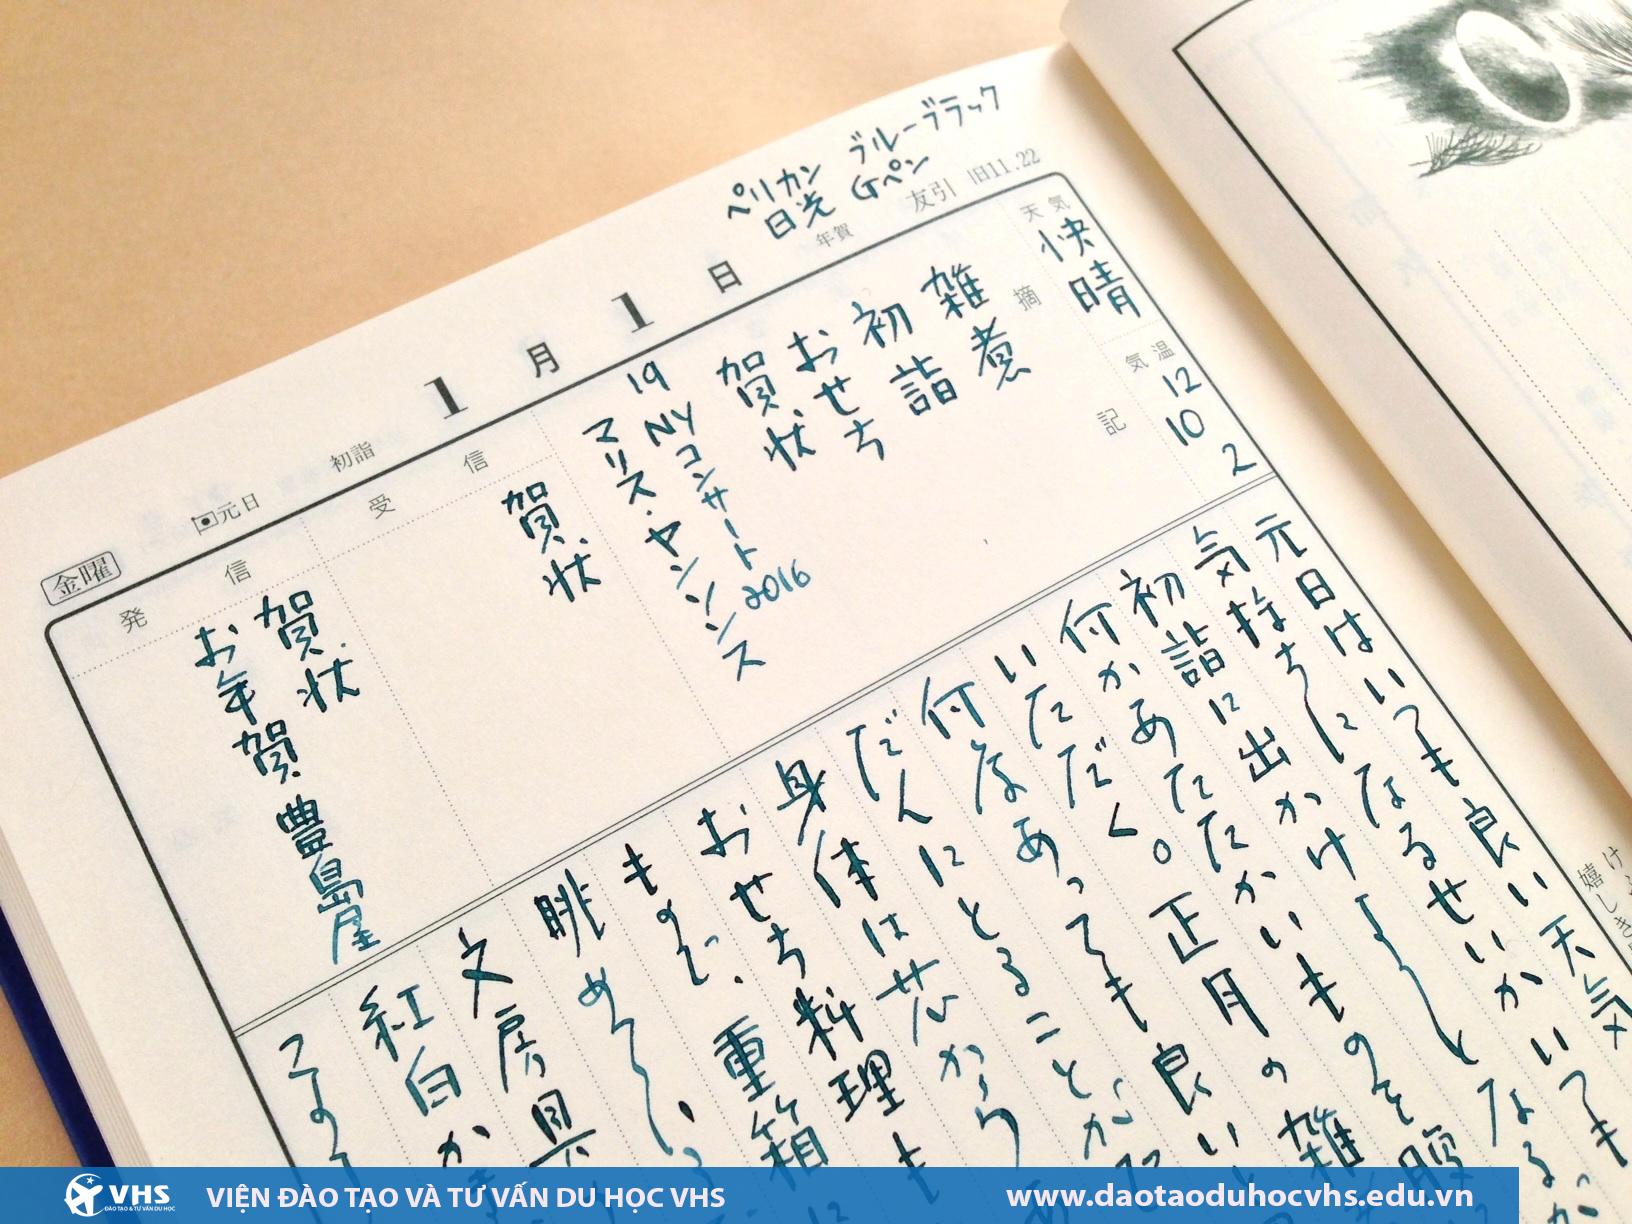 ペリカン ブルーブラック
日光 Gペン
金曜
元日
初詣
1月1日
年賀
友引 旧11.22
天気
快晴
気温
12
10
2
摘記
雑煮
初詣
おせち
賀状
19 NYコンサート2016
マリス・ヤンソンス
受信
賀状
発信
賀状
お年賀 豊島屋
元日はいつも良い天気
気持ちになるせいかいつも
初詣に出かけようとなる
何かあたたかいものを腹
いただく。正月の雑
何はなあっても良い
だんにとることが
身体は芯から
おせち料理も
ものぞ、重箱
眺めている
文房具
紅白か
VHS
ĐÀO TẠO & TƯ VẤN DU HỌC
VIỆN ĐÀO TẠO VÀ TƯ VẤN DU HỌC VHS
www.daotaoduhocvhs.edu.vn